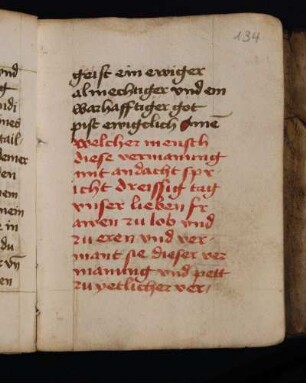 134
geist ein ewiger
almechtiger und ein
warhafftiger got
pist ewigclich Amē
Welcher mensch
diese vermanung
mit andacht spr
icht dreissig tag
vnser lieben fr
awen zu lob vnd
zu eren vnd ver
mant sie dieser ver
manung vnd pett
zu yetlicher ver/